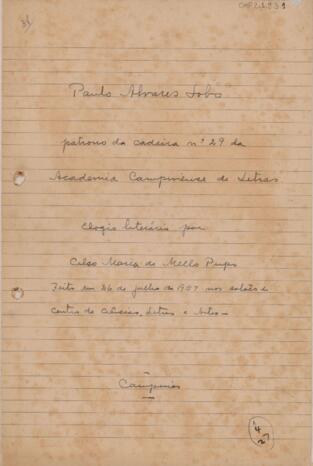 CMP 2.1.9.3 1
31
Paulo Alvares Lobo
patrono da cadeira nº 29 da
Academia Campinense de Letras
Elogio literário por
Celso Maria de Mello Pupo
Feito em 26 de julho de 1957 nos salões do
Centro de Ciências, Letras e Artes -
Campinas
4
27